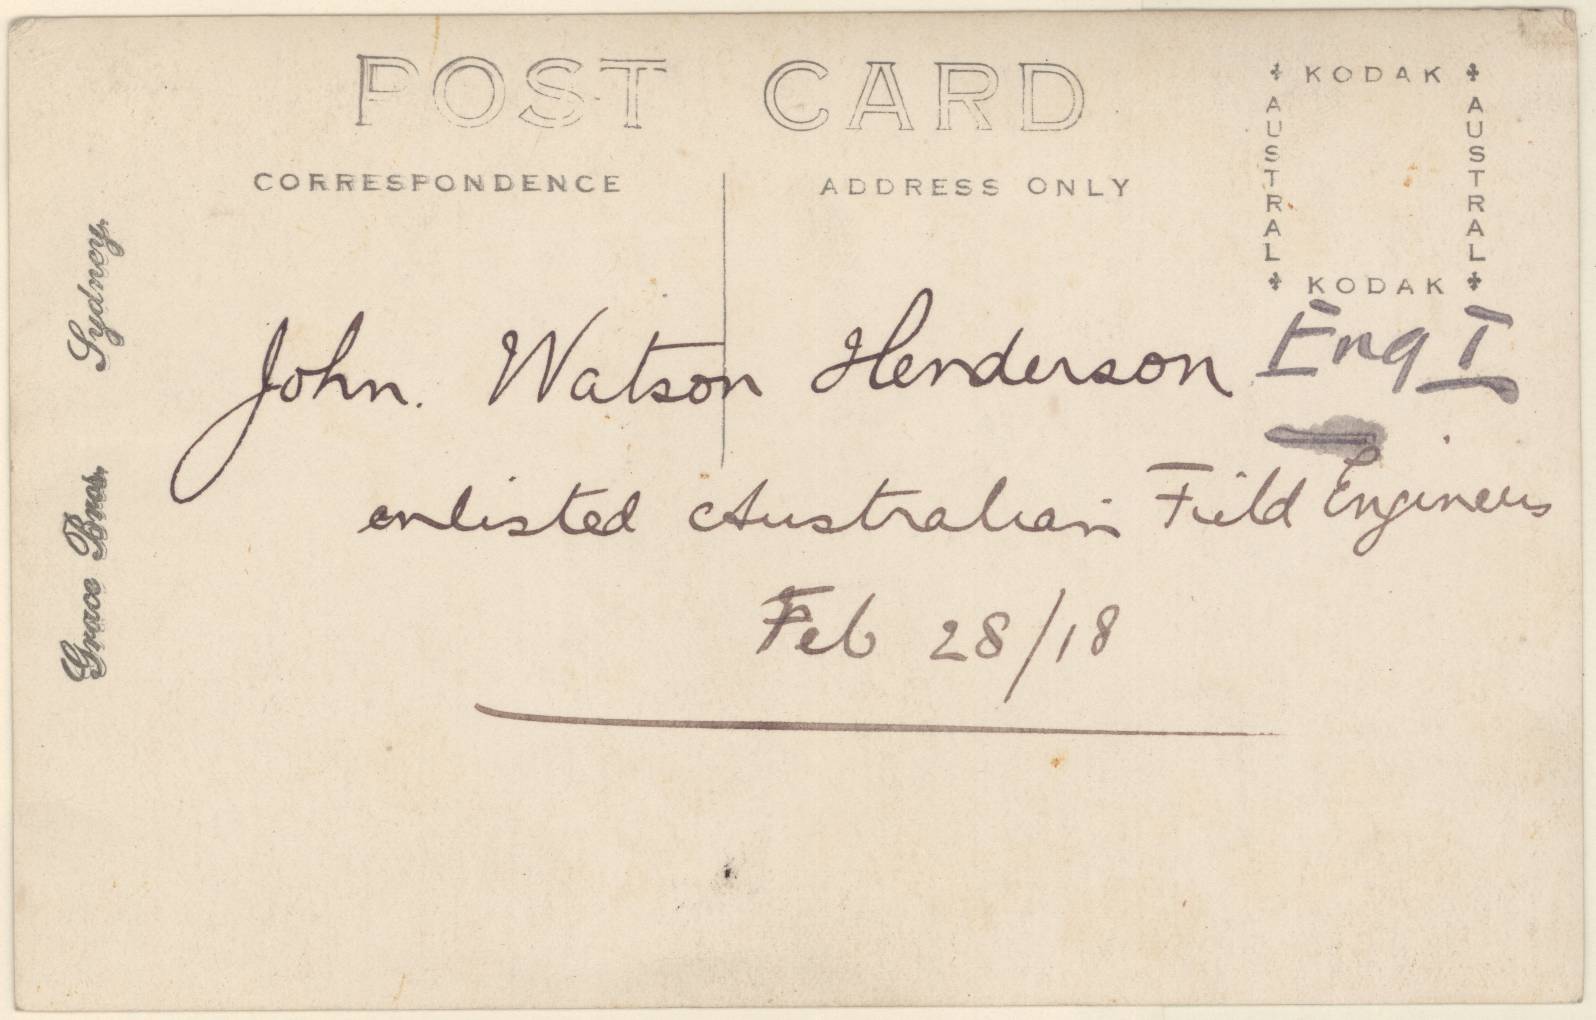 POST CARD
CORRESPONDENCE
ADDRESS ONLY
KODAK
AUSTRAL
AUSTRAL
KODAK
Grace Bros. Sydney.
John. Watson Henderson
Eng I
enlisted Australian Field Engineers
Feb 28/18